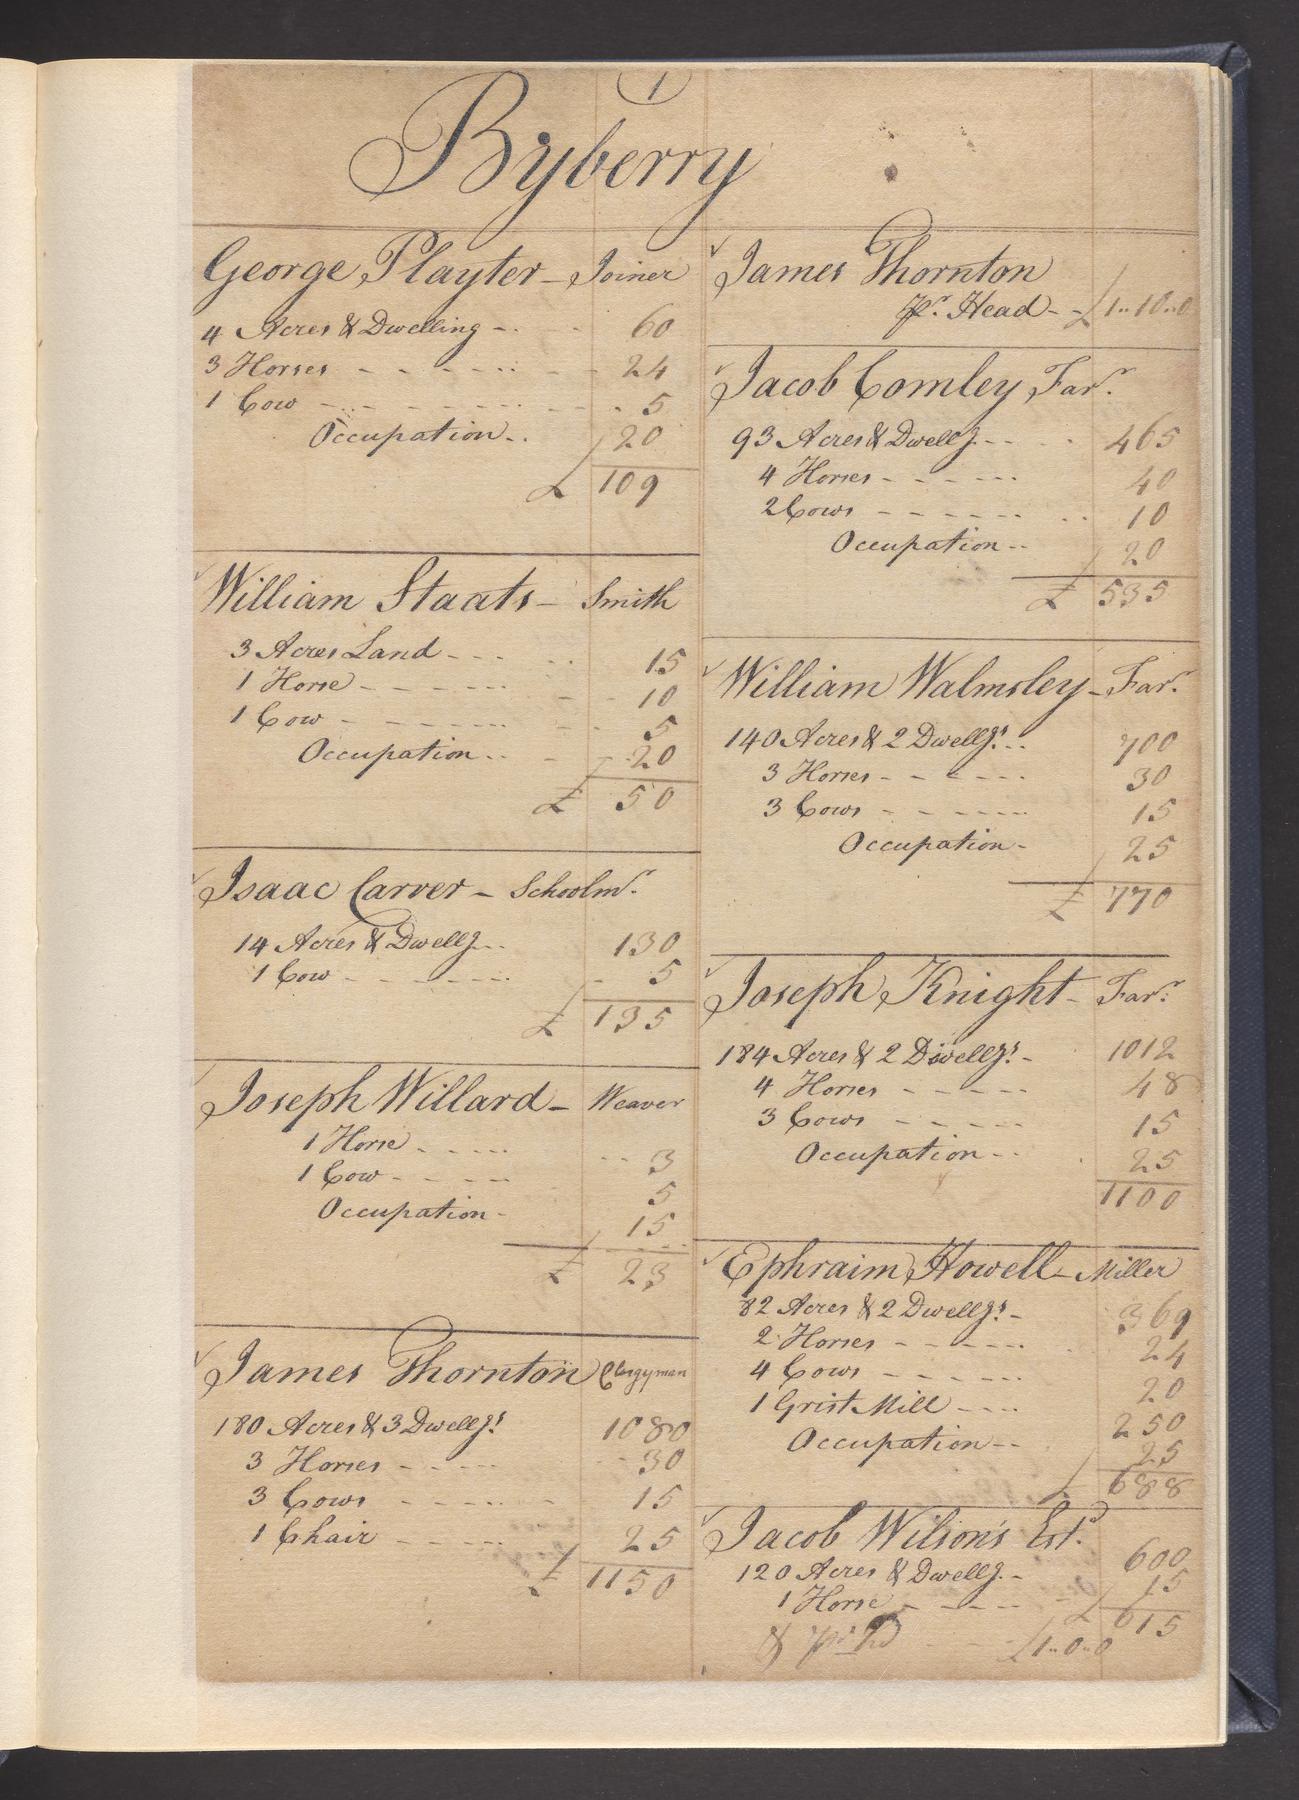 1
Byberry
George Playter - Joiner
4 Acres & Dwelling 60
3 Horses 24
1 Cow 5
Occupation 20
£ 109
William Staats - Smith
3 Acres Land 15
1 Horse 10
1 Cow 5
Occupation 20
£ 50
Isaac Carver - Schoolmr.
14 Acres & Dwellg 130
1 Cow 5
£ 135
Joseph Willard - Weaver
1 Horse 3
1 Cow 5
Occupation 15
£ 23
James Thornton Clergyman
180 Acres & 3 Dwellgs. 1080
3 Horses 30
3 Cows 15
1 Chair 25
£ 1150
James Thornton
Pr. Head £1..10..0
Jacob Comley Farr.
93 Acres & Dwellg 465
4 Horses 40
2 Cows 10
Occupation 20
£ 535
William Walmsley - Farr.
140 Acres & 2 Dwellgs. 700
3 Horses 30
3 Cows 15
Occupation 25
£ 770
Joseph Knight - Farr.
184 Acres & 2 Dwellgs. 1012
4 Horses 48
3 Cows 15
Occupation 25
1100
Ephraim Howell - Miller
82 Acres & 2 Dwellgs. 369
2 Horses 24
4 Cows 20
1 Grist Mill 250
Occupation 25
£ 688
Jacob Wilson's Estd.
120 Acres & Dwellg. 600
1 Horse 15
£ 615
& pr. hd £1..0..0